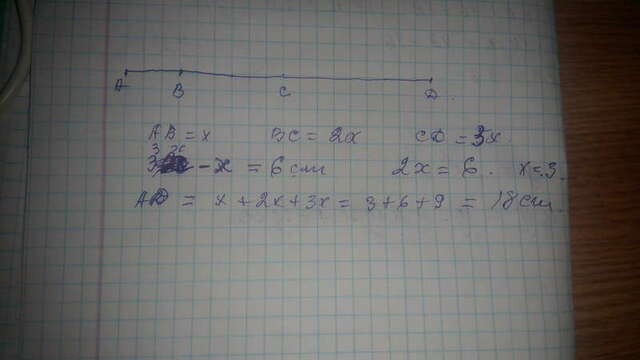 A B C D.
AB = x BC = 2x CD = 3x
3x - x = 6 см 2x = 6. x = 3.
AD = x + 2x + 3x = 3 + 6 + 9 = 18 см.